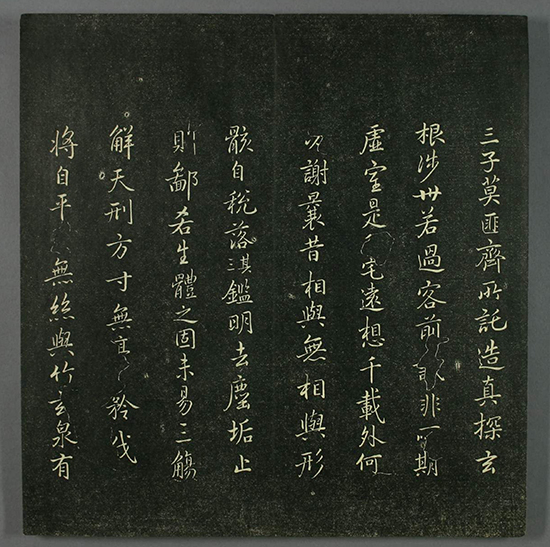 三子莫匪齊所託造真探玄
根涉世若過客前非期
虛室是宅遠想千載外何
謝曩昔相與無相與形
骸自稅落鑑明去塵垢止
則鄙吝生體之固未易三觴
解天刑方寸無矜伐
將自平無絲與竹玄泉有